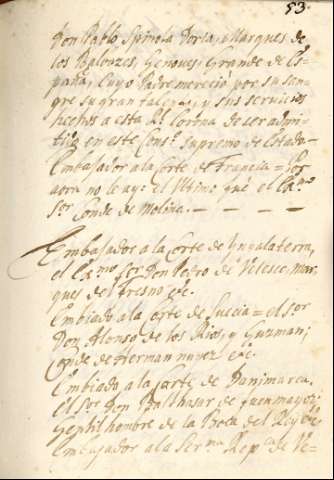 53.
Don Pablo Spinola Doria, Marques de
los Balbazes, Genoves, Grande de Es=
paña, Cuyo Padre mereció por su san=
gre su gran talento, y sus servicios
hechos a esta Rl. Corona de ser admi=
tido en este Cons.o supremo de Estado—
Embajador a la Corte de Francia = Por
aora no le ay: el Ultimo fue el Ex.mo
S.or Conde de Molina. — — — —
Embajador a la Corte de Yngalaterra,
el Ex.mo S.or Don Pedro de Velasco, Mar=
ques del Fresno &c.
Embiado a la Corte de Suecia = el S.or
Don Alonso de los Rios, y Guzman;
Conde de Hernan nuñez &c.
Embiado a la Corte de Danimarca.
el S.or Don Balthasar de fuenmayor,
Gentil hombre de la Boca del Rey &c.
Embajador a la Ser.ma Rep.ca de Ve=